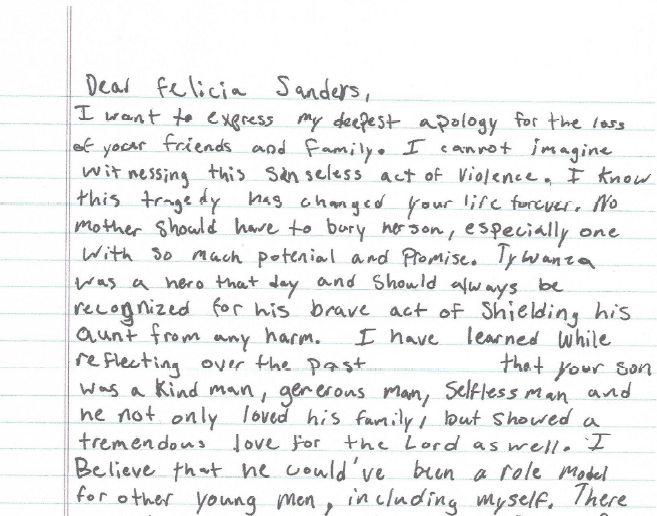 Dear Felicia Sanders,
I want to express my deepest apology for the loss
of your friends and family. I cannot imagine
witnessing this sinseless act of violence. I know
this tragedy has changed your life forever. No
mother should have to bury her son, especially one
with so much potenial and Promise. Tywanza
was a hero that day and should always be
recognized for his brave act of Shielding his
aunt from any harm. I have learned While
reflecting over the past that your son
was a Kind man, generous man, Selfless man and
he not only loved his family, but showed a
tremendous love for the Lord as well. I
Believe that he could've been a role model
for other young men, including myself. There